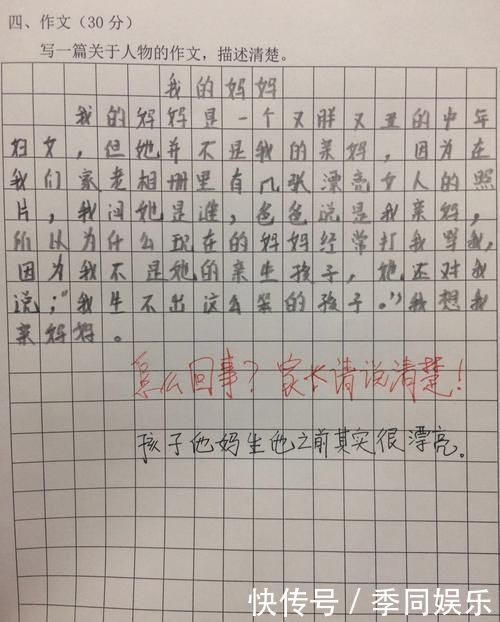 四、作文（30分）
写一篇关于人物的作文，描述清楚。
我的妈妈
我的妈妈是一个又胖又丑的中年
妇女，但她并不是我的亲妈，因为在
我们家老相册里有几张漂亮女人的照
片，我问她是谁，爸爸说是我亲妈，
所以为什么现在的妈妈经常打我骂我，
因为我不是她的亲生孩子，她还对我
说；“我生不出这么笨的孩子。”我想我
亲妈妈。
怎么回事？家长请说清楚！
孩子他妈生他之前其实很漂亮。
快传号／季同娱乐